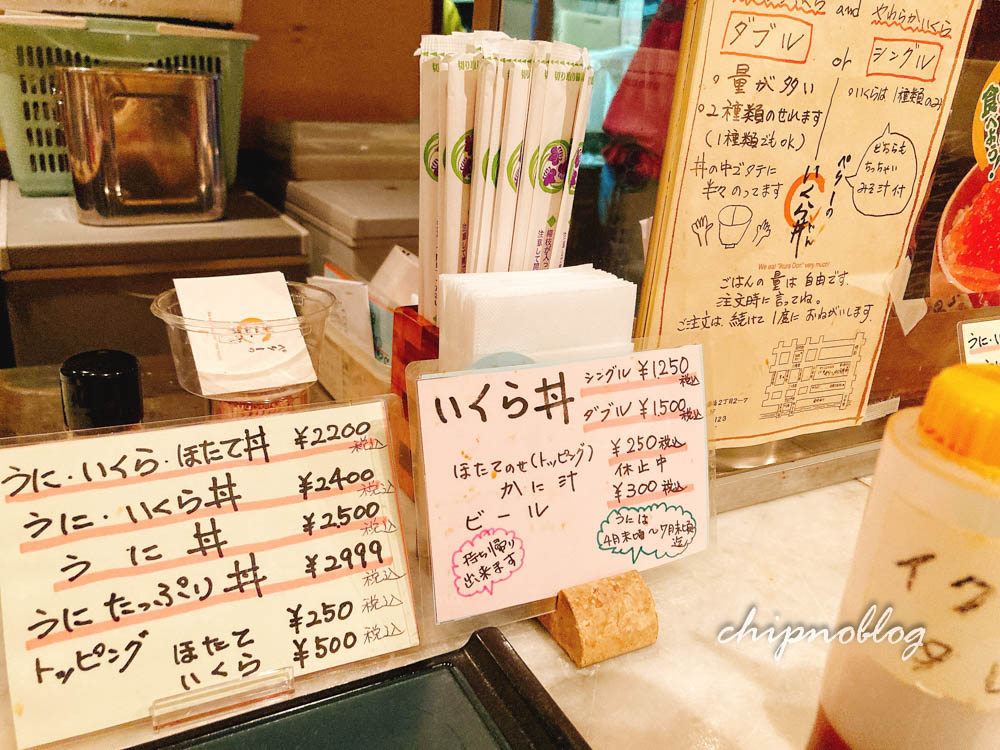 うに・いくら・ほたて丼 ¥2200 税込
うに・いくら丼 ¥2400 税込
うに丼 ¥2,500 税込
うにたっぷり丼 ¥2999 税込
トッピング ほたて ¥250 税込
いくら ¥500 税込
いくら丼 シングル ¥1250 税込
ダブル ¥1500 税込
ほたてのせ(トッピング) ¥250 税込
かに汁 休止中
ビール ¥300 税込
持ち帰り
出来ます
うには
4月末頃〜7月末頃
迄
and やわらかいくら
ダブル or シングル
○量が多い
○いくらは1種類のみ
○2種類のせれます
(1種類でもOK)
丼の中でタテに
半々のってます
どちらも
ちっちゃい
みそ汁付
ペターの
いくら丼
We eat "Ikura Don" very much!
ごはんの量は自由です。
注文時に言ってね。
ご注文は、続けて1度におねがいします。
2丁目2-7
123
食べよう!
うに・い
イク
タレ
chipnoblog